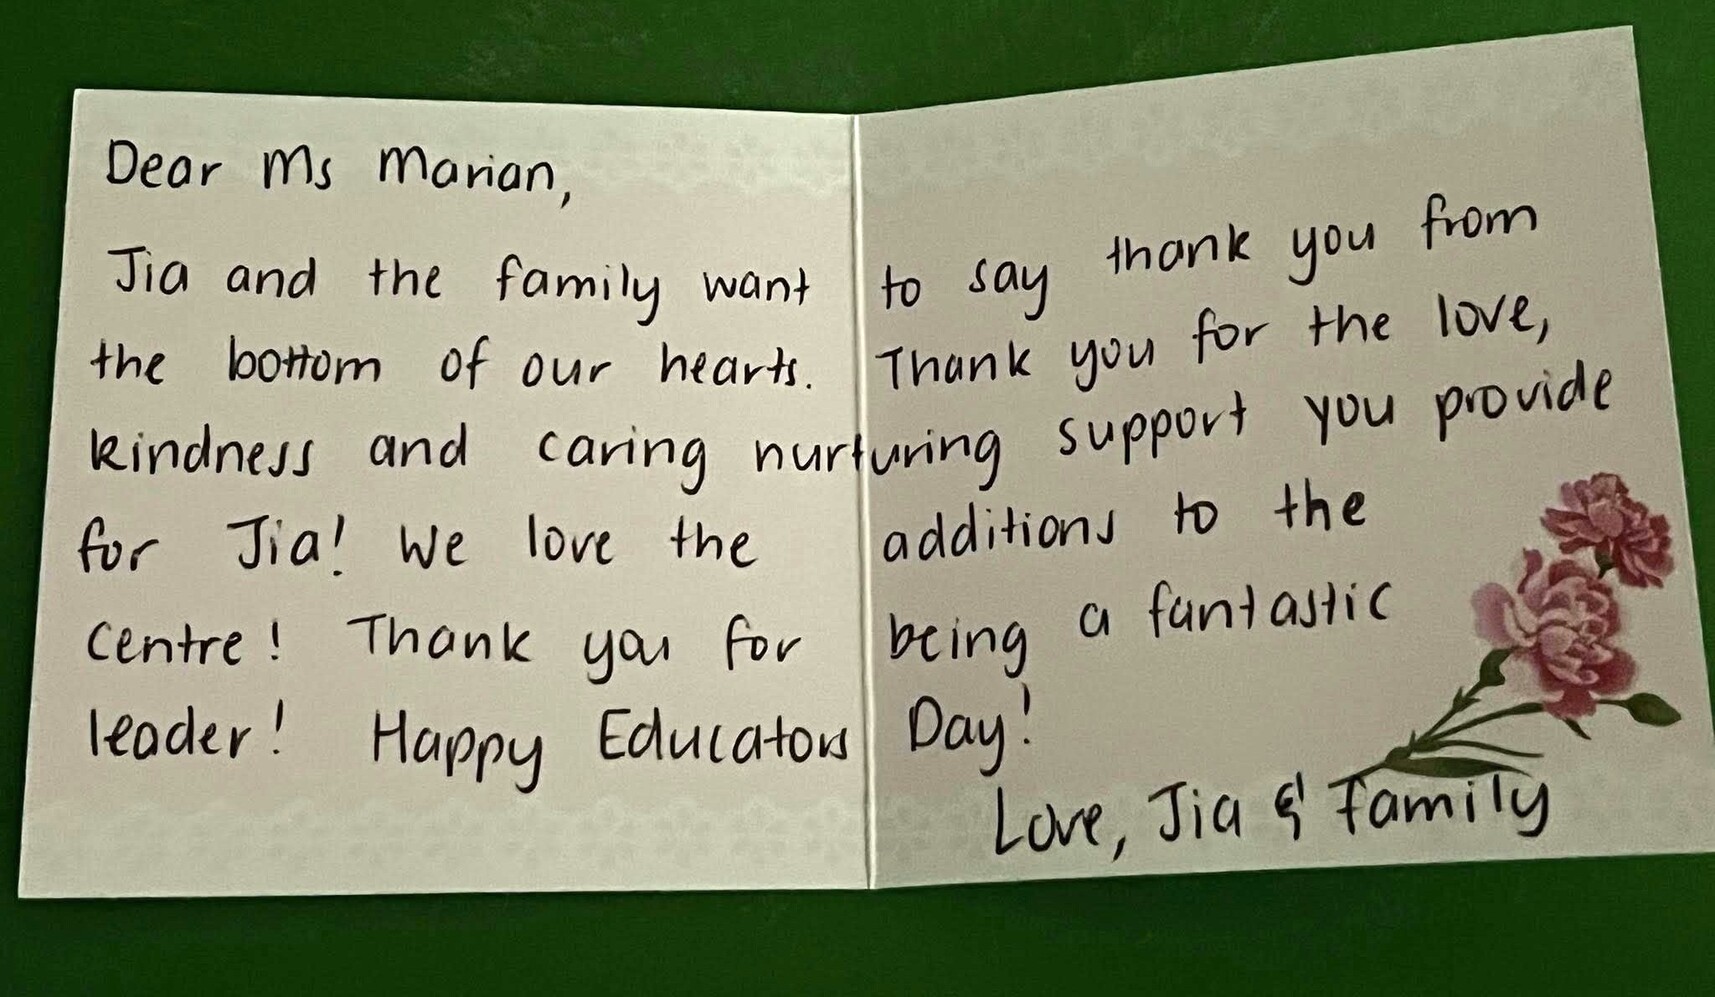 Dear Ms Marian,
Jia and the family want to say thank you from
the bottom of our hearts. Thank you for the love,
kindness and caring nurturing support you provide
for Jia! We love the additions to the
Centre! Thank you for being a fantastic
leader! Happy Educators Day!
Love, Jia & Family